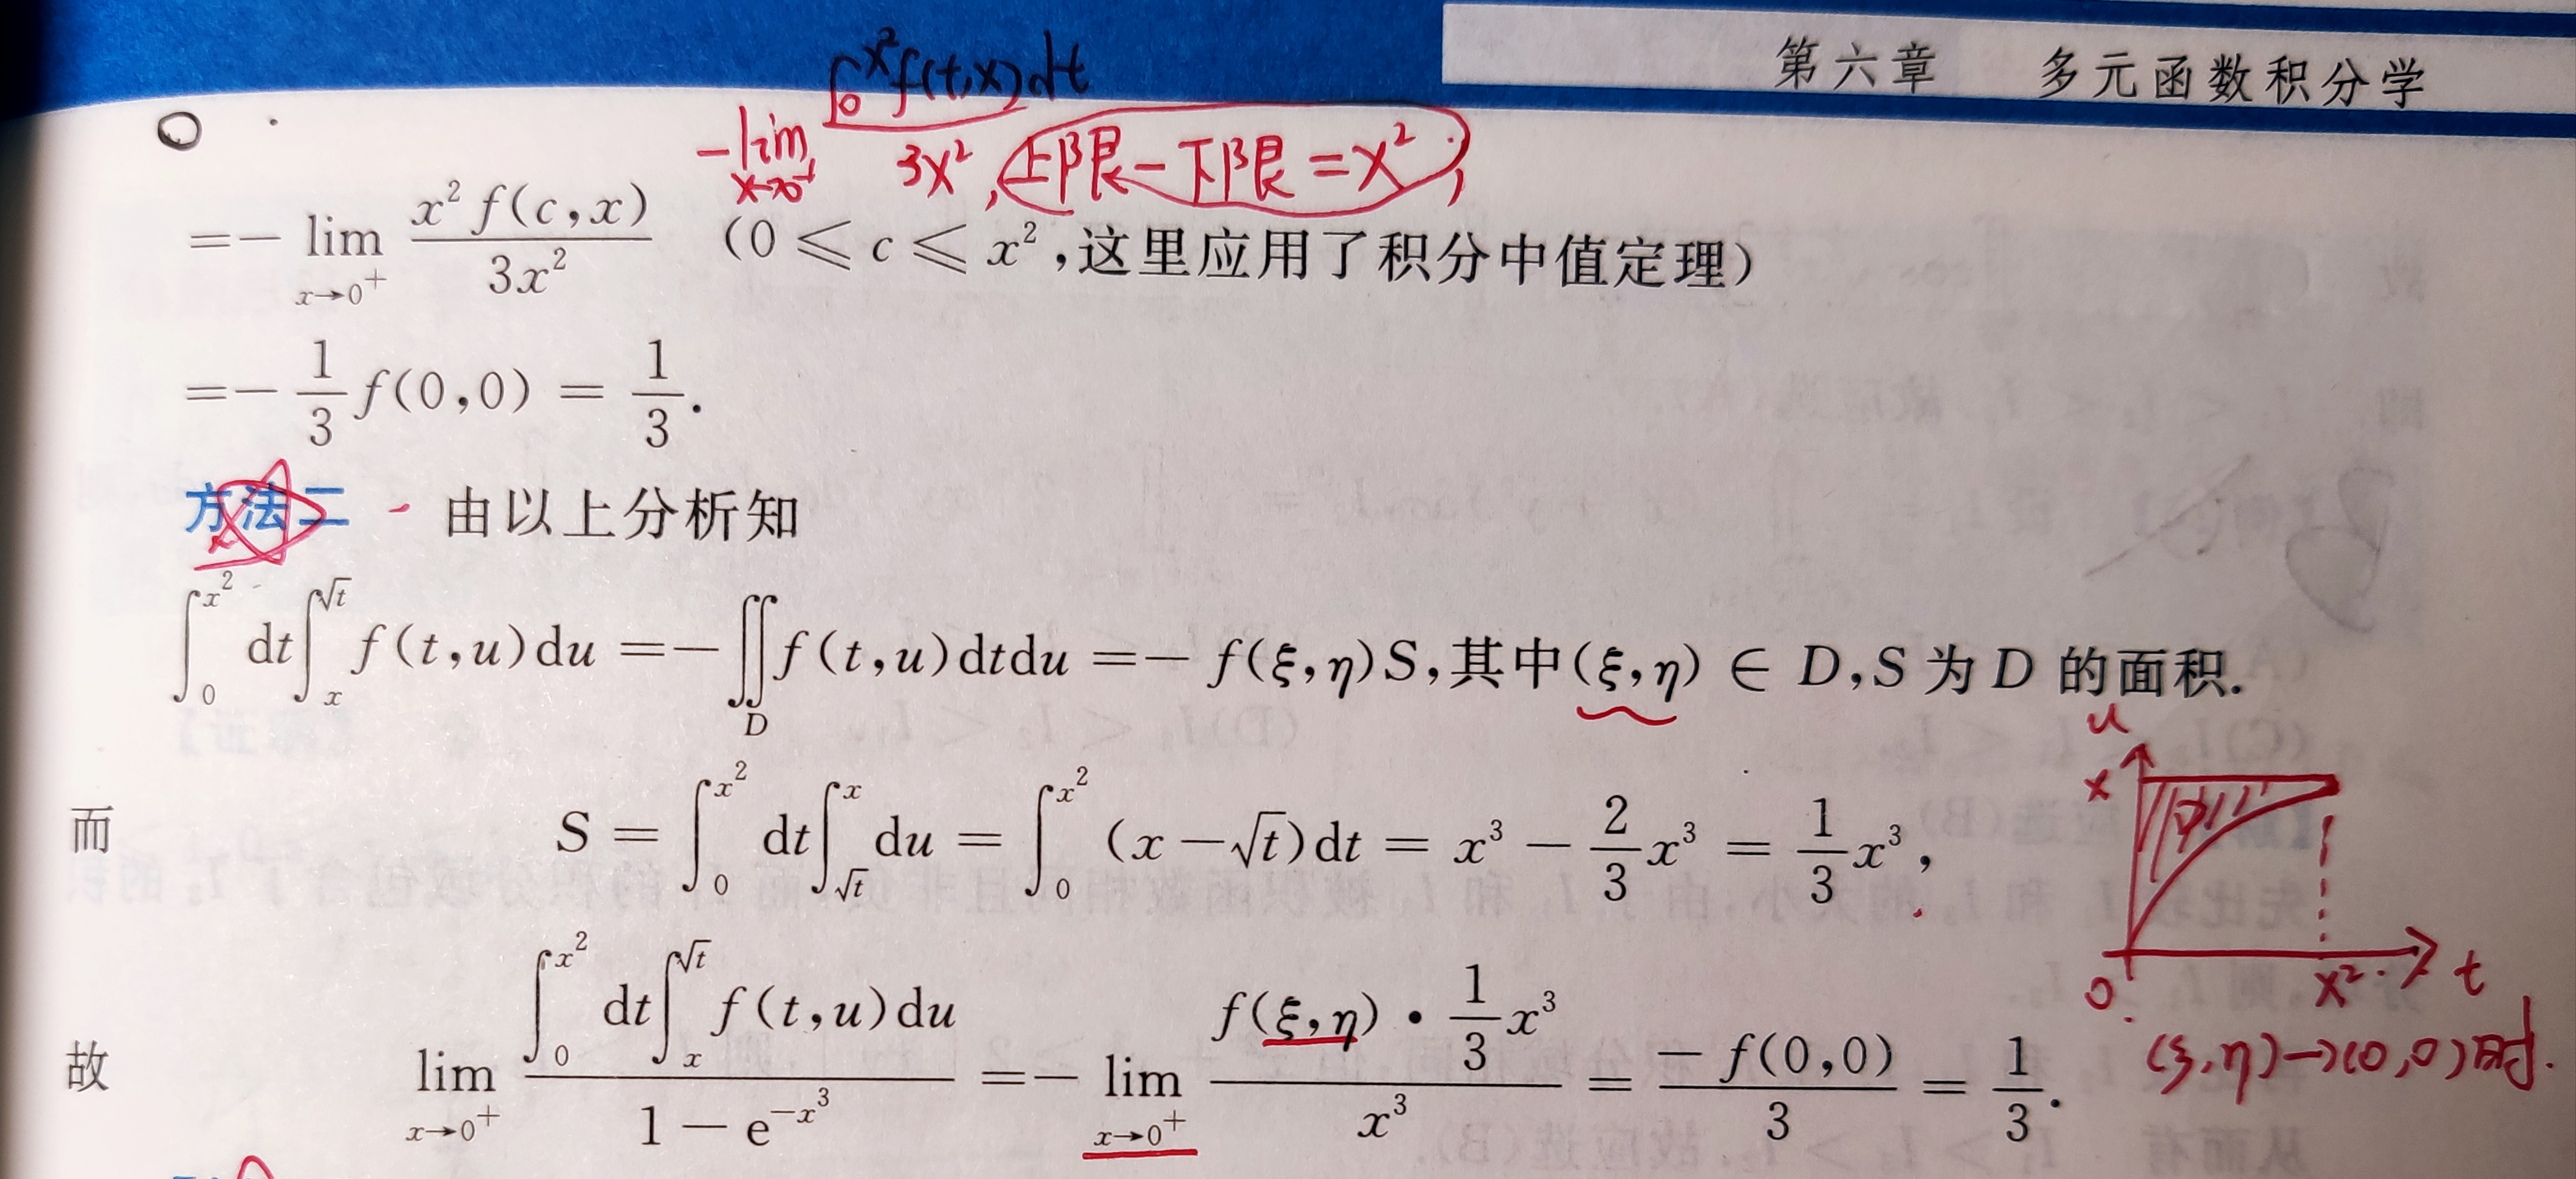 第六章 多元函数积分学
∫₀^{x²} f(t,x)dt
-lim_{x→0⁺} 3x², 上限-下限=x²,
=- lim_{x→0⁺} x² f(c,x) / 3x² (0 ≤ c ≤ x²,这里应用了积分中值定理)
=- 1/3 f(0,0) = 1/3.
方法二 由以上分析知
∫₀^{x²} dt∫ₓ^{√t} f(t,u)du =-∬_D f(t,u)dtdu =- f(ξ,η)S,其中(ξ,η) ∈ D,S 为 D 的面积.
而 S = ∫₀^{x²} dt∫_{√t}^{x} du = ∫₀^{x²} (x-√t)dt = x³ - 2/3 x³ = 1/3 x³,
u
x
D
0 x² t
故 lim_{x→0⁺} ∫₀^{x²} dt∫ₓ^{√t} f(t,u)du / 1-e^{-x³} =- lim_{x→0⁺} f(ξ,η)·1/3 x³ / x³ = -f(0,0)/3 = 1/3.
(ξ,η)→(0,0)时.